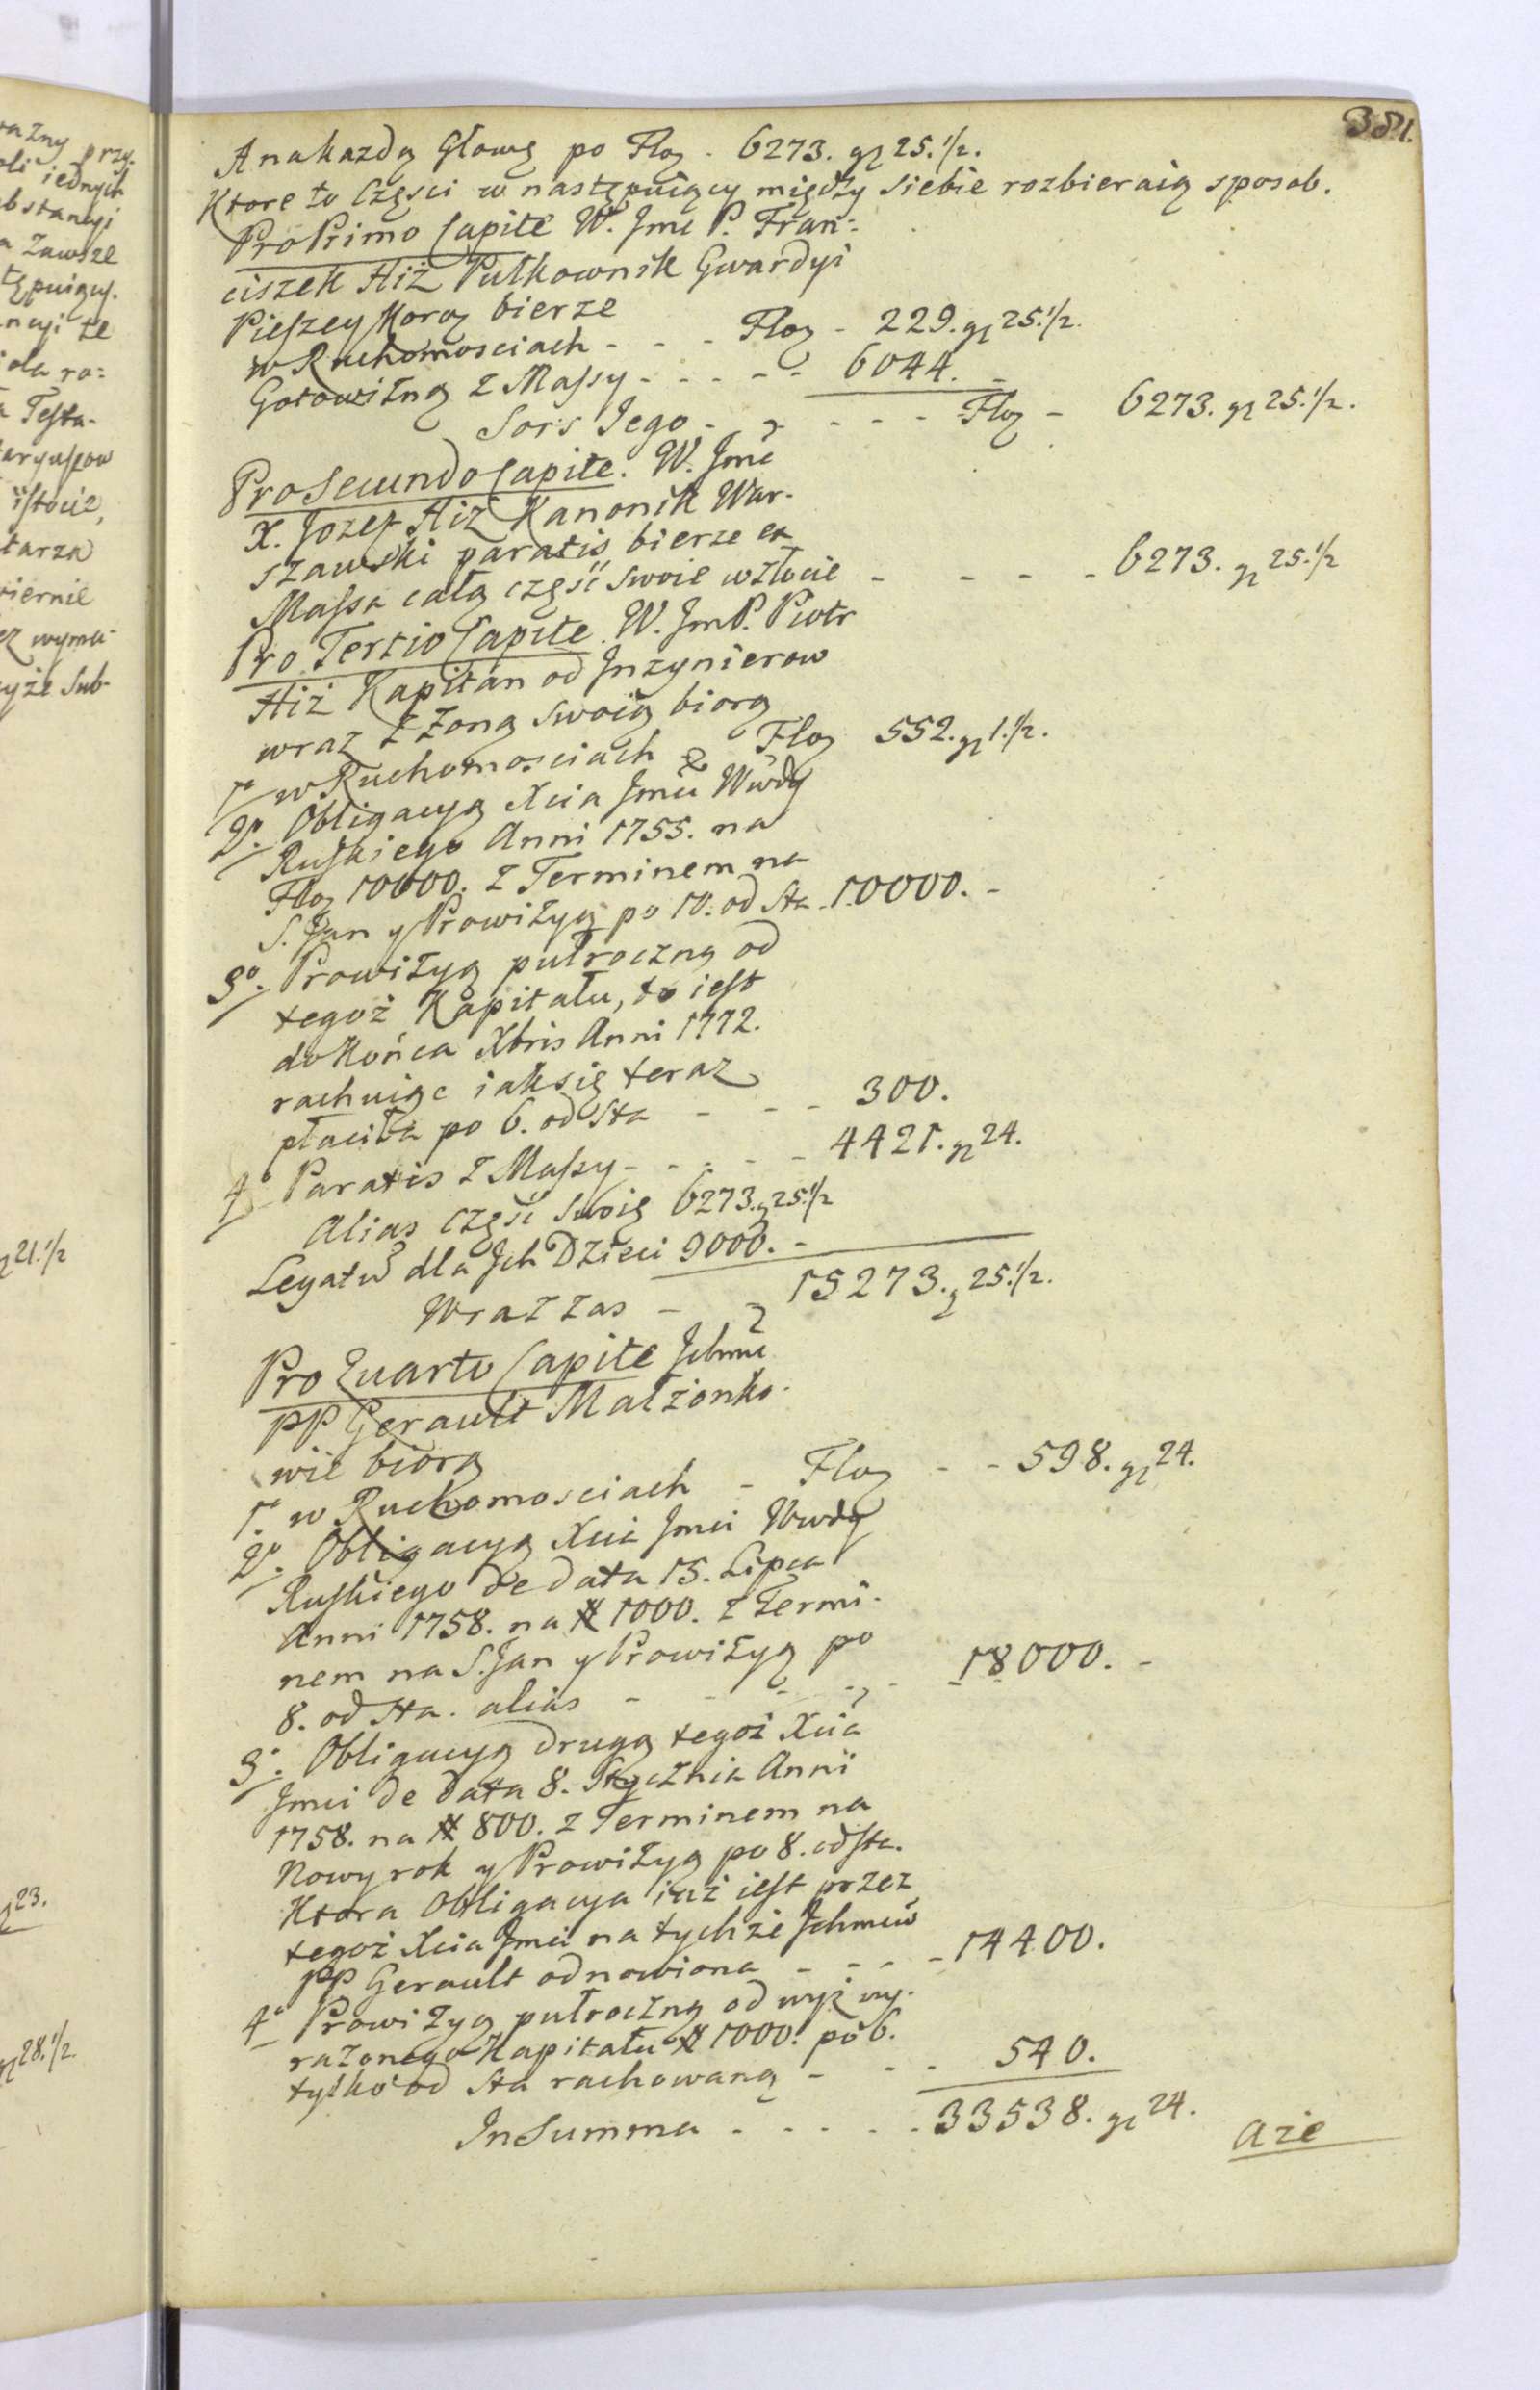 381.
A na każdą Głowę po Floz. 6273. gr 25.1/2.
Ktore to Części w następuiący między siebie rozbieraią sposob.
Pro Primo Capite W. Jmć P. Fran:
ciszek Hiż Pułkownik Gwardyi
Pieszey Koroz bierze
w Ruchomosciach - - - Floz - 229. gr 25.1/2.
Gotowizną z Massy - - - - - 6044. -
Sors Jego - - - - - Floz - 6273. gr 25.1/2.
Pro Secundo Capite. W. Jmć
X. Jozef Hiż Kanonik War-
szawski paratis bierze ex
Massa całą część swoie w złocie - - - - 6273. gr 25.1/2
Pro Tertio Capite. W. Jm P. Piotr
Hiż Kapitan od Inzynierow
wraz z Zoną swoią biorą
1o w Ruchomosciach Floz 552. gr 1.1/2.
2o. Obligacyą Xcia Jmći Wwdy
Ruskiego Anni 1755. na
Floz 10000. z Terminem na
S. Jan y Prowizyą po 10. od Sta - 10000. -
3o. Prowizyą pułroczną od
tegoż Kapitału, to iest
do Końca Xbris Anni 1772.
rachuiąc iak się teraz
płaciła po 6. od Sta - - - 300.
4o Paratis z Massy - - - - - 4421. gr 24.
Alias część swoię 6273. gr 25.1/2
Legatu dla Ich Dzieci 9000. -
Wraz zas - - 15273. gr 25.1/2.
Pro Quarto Capite Jchmć
PP Gerault Małżonko-
wie biorą
1o. w Ruchomosciach - Floz - - 598. gr 24.
2o. Obligacyą Xcia Jmći Wwdy
Ruskiego de data 15. Lipca
Anni 1758. na # 1000. z Termi-
nem na S. Jan y Prowizyą po
8. od Sta. alias - - - - - 18000. -
3o. Obligacyą drugą tegoż Xcia
Jmći de data 8. Stycznia Anni
1758. na # 800. z Terminem na
Nowy rok y Prowizyą po 8. od Sta.
Ktora Obligacya iuż iest przez
tegoż Xcia Jmći na tychże Jchmciow
PP Gerault odnowiona - - - - 14400.
4o Prowizyą pułroczną od wyż wy-
rażonego Kapitału # 1000. po 6.
tylko od Sta rachowaną - - - 540.
In Summa - - - - - 33538. gr 24.
Aże